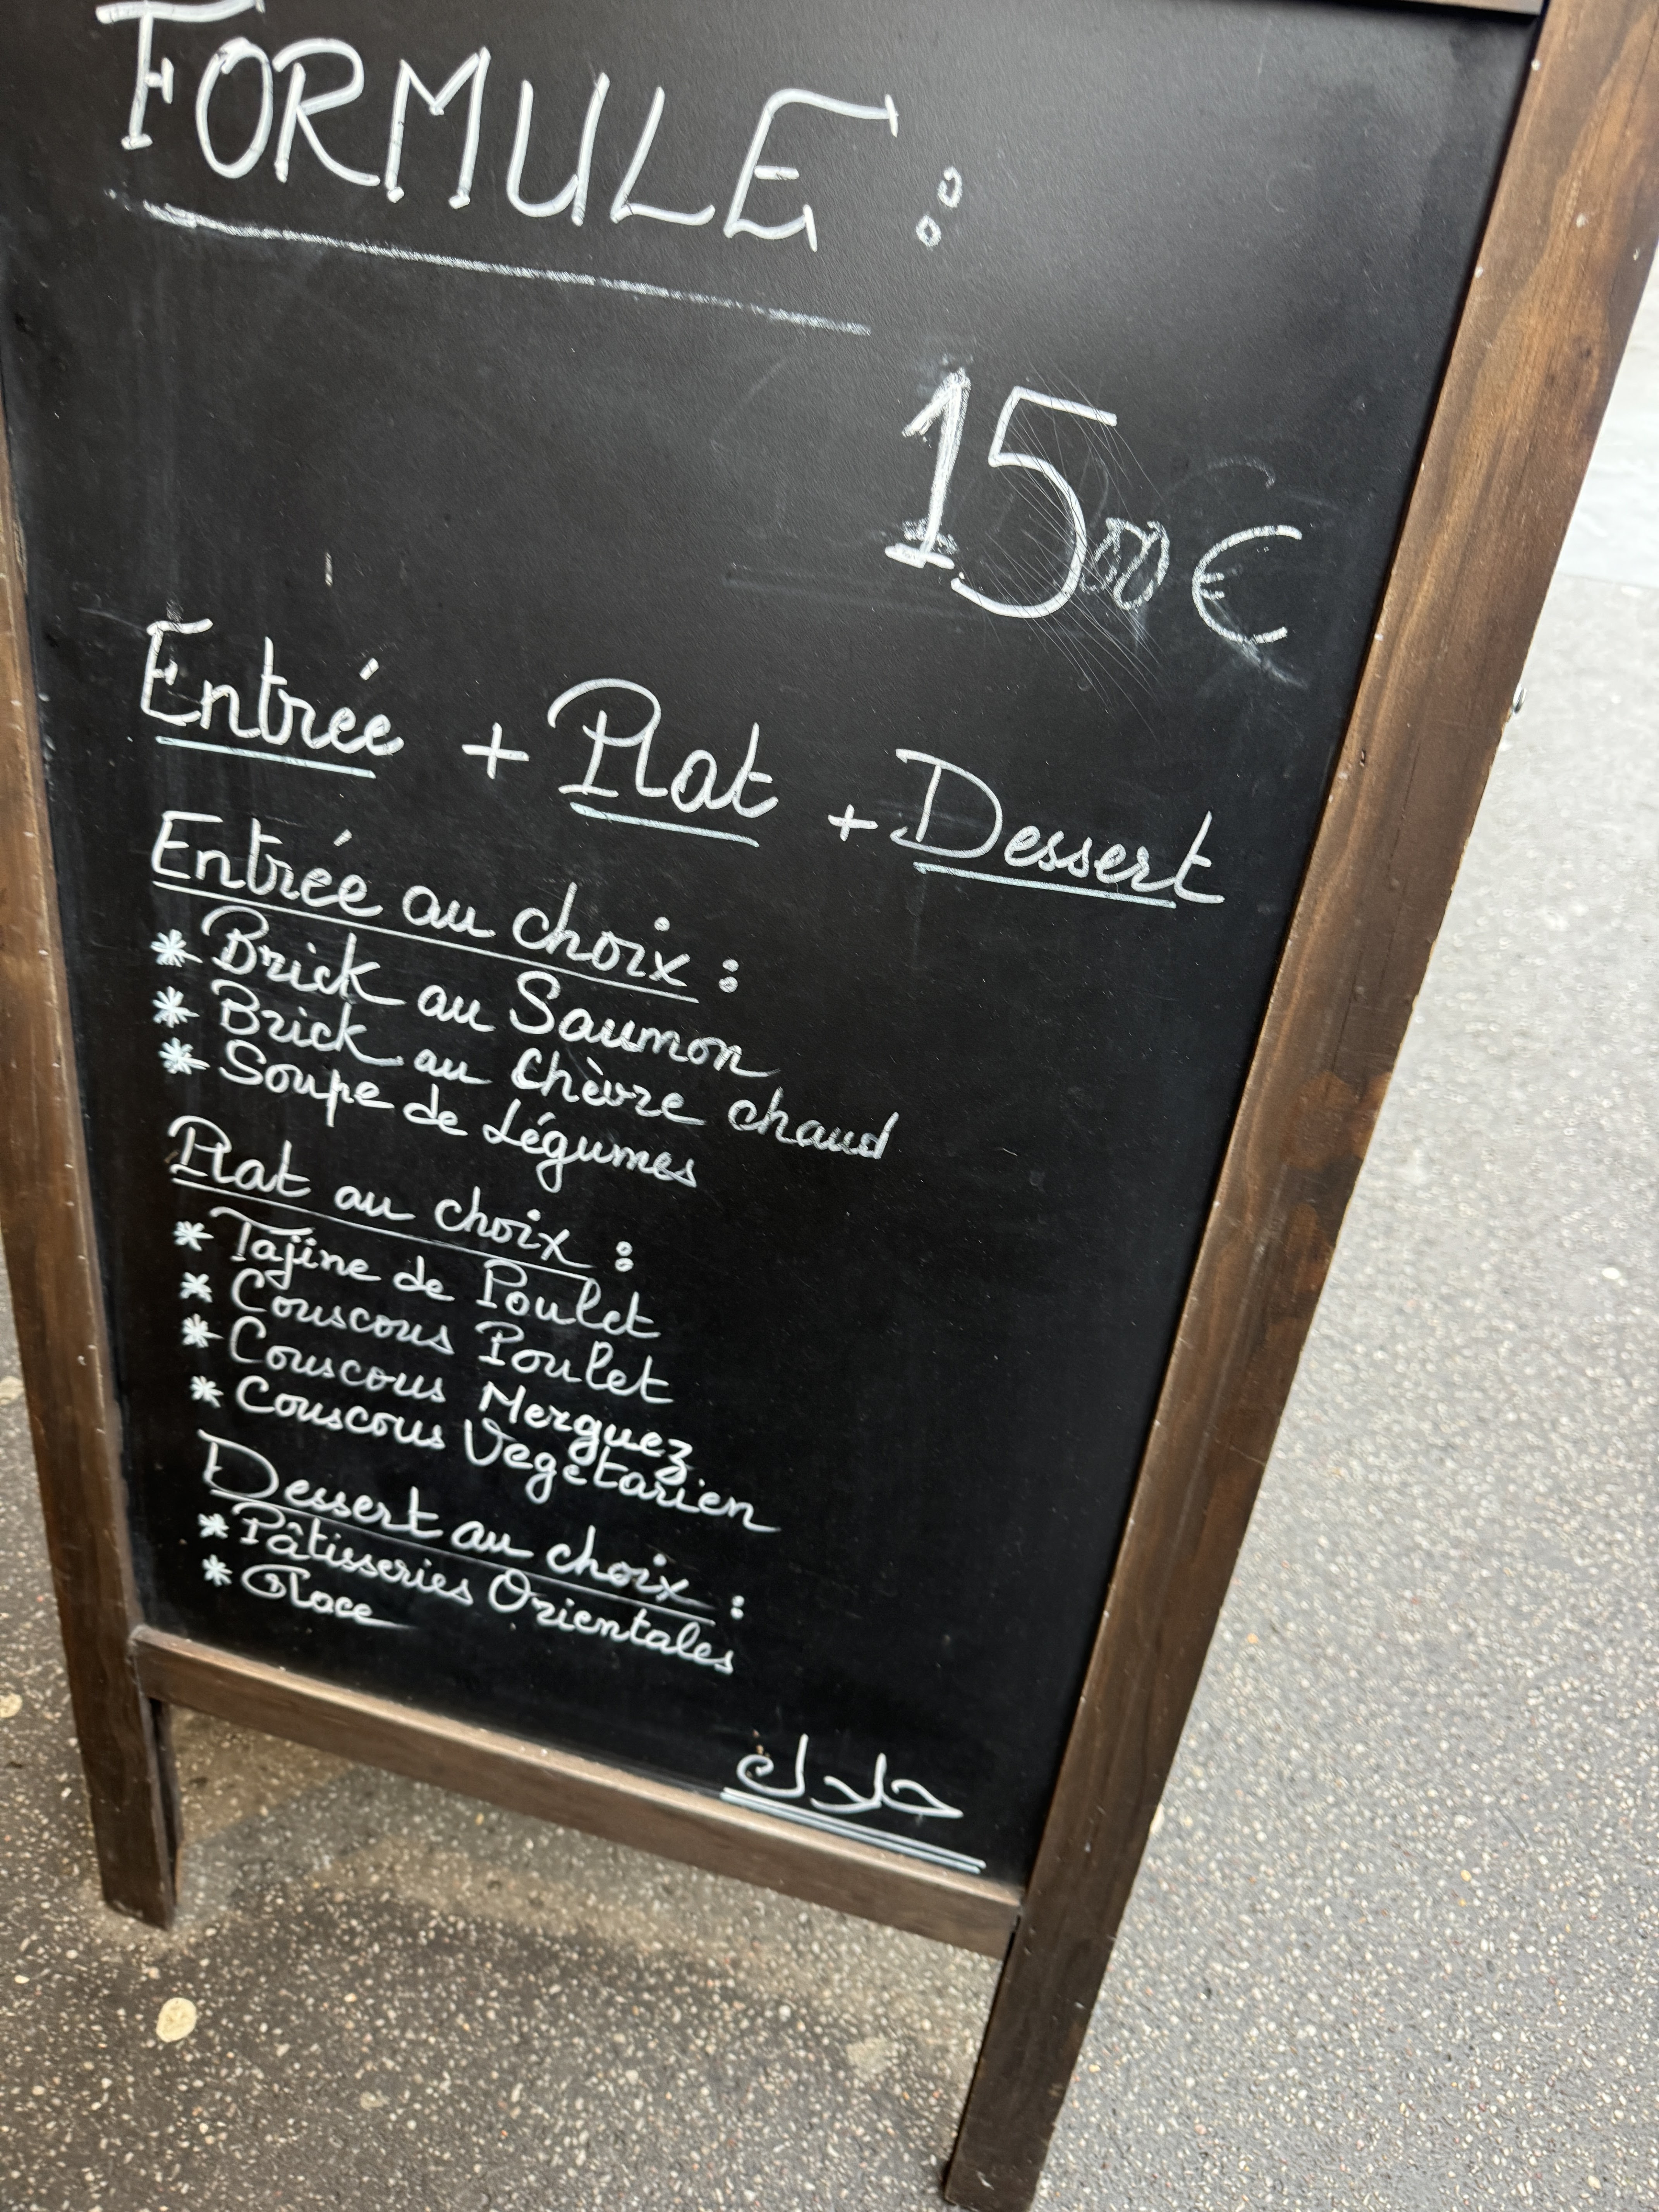 FORMULE :
15,00 €
Entrée + Plat + Dessert
Entrée au choix :
* Brick au Saumon
* Brick au Chèvre chaud
* Soupe de Légumes
Plat au choix :
* Tajine de Poulet
* Couscous Poulet
* Couscous Merguez
* Couscous Vegetarien
Dessert au choix :
* Pâtisseries Orientales
* Glace
حلال